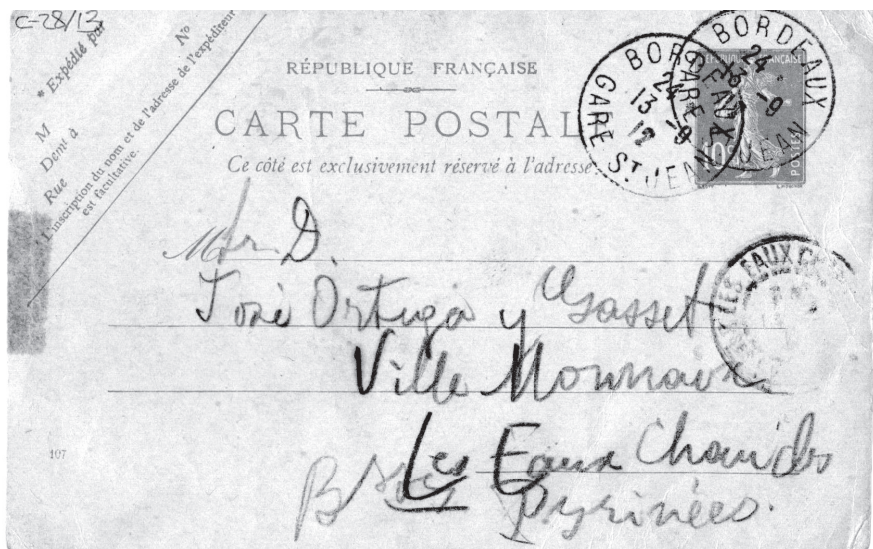 C-28/13
* Expédié par
M
Demt à
Rue
No
L'inscription du nom et de l'adresse de l'expéditeur
est facultative.
RÉPUBLIQUE FRANÇAISE
CARTE POSTALE
Ce côté est exclusivement réservé à l'adresse.
BORDEAUX
24
13 -9
GARE ST JEAN
BORDEAUX
24
13 -9
GARE JEAN
RÉPUBLIQUE FRANÇAISE
10c
POSTES
LES EAUX
Mr. D.
José Ortega y Gasset
Ville
Les Eaux Chaudes
Bses Pyrinées.
107